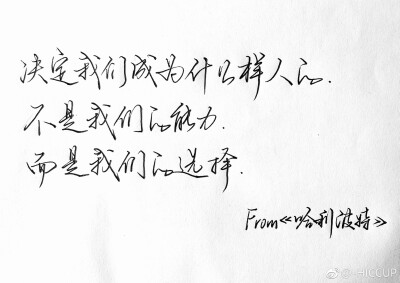 决定我们成为什么样人的.
不是我们的能力.
而是我们的选择.
From《哈利波特》
@-HICCUP_